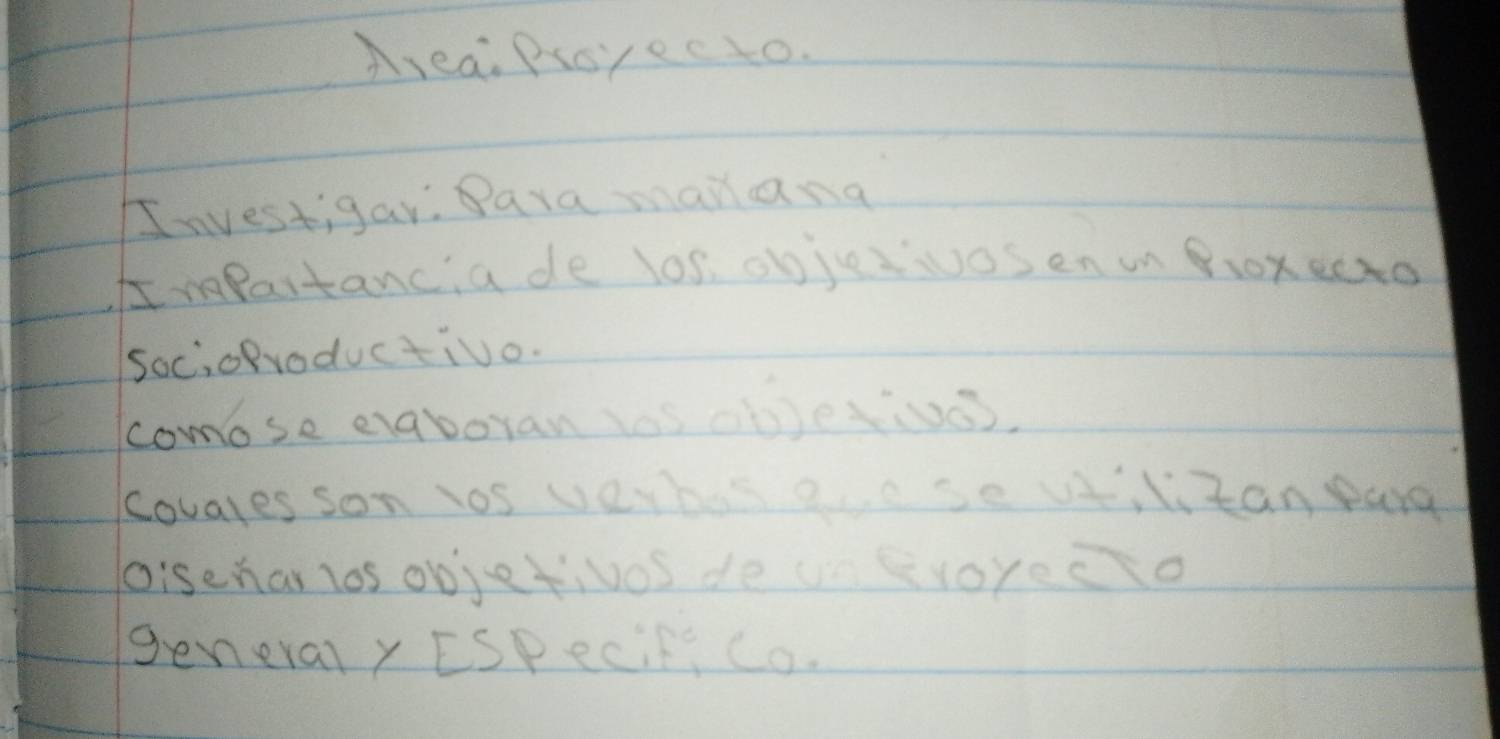 Area: Proyecto.
Investigar. Para mañana
. Importancia de los objetivos en un Proyecto
socioProductivo.
como se elaboran los objetivos.
couales son los verbos que se utilizan para
Diseñar los objetivos de un Proyecto
general y ESPecifico.